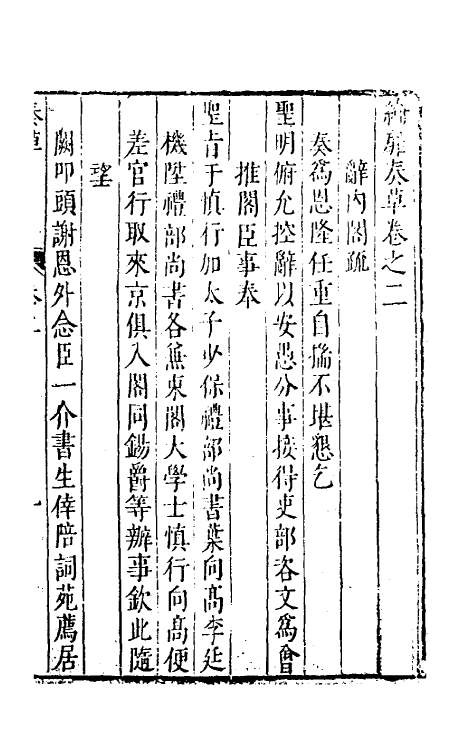 綸扉奏草卷之二
辭內閣疏
奏爲恩隆任重自揣不堪懇乞
聖明俯允控辭以安愚分事接得吏部咨文爲會
推閣臣事奉
聖旨于慎行加太子少保禮部尚書葉向高李廷
機陞禮部尚書各兼東閣大學士慎行向高便
差官行取來京俱入閣同錫爵等辦事欽此隨
望
闕叩頭謝恩外念臣一介書生倖陪詞苑薦居
奏草
卷二
一